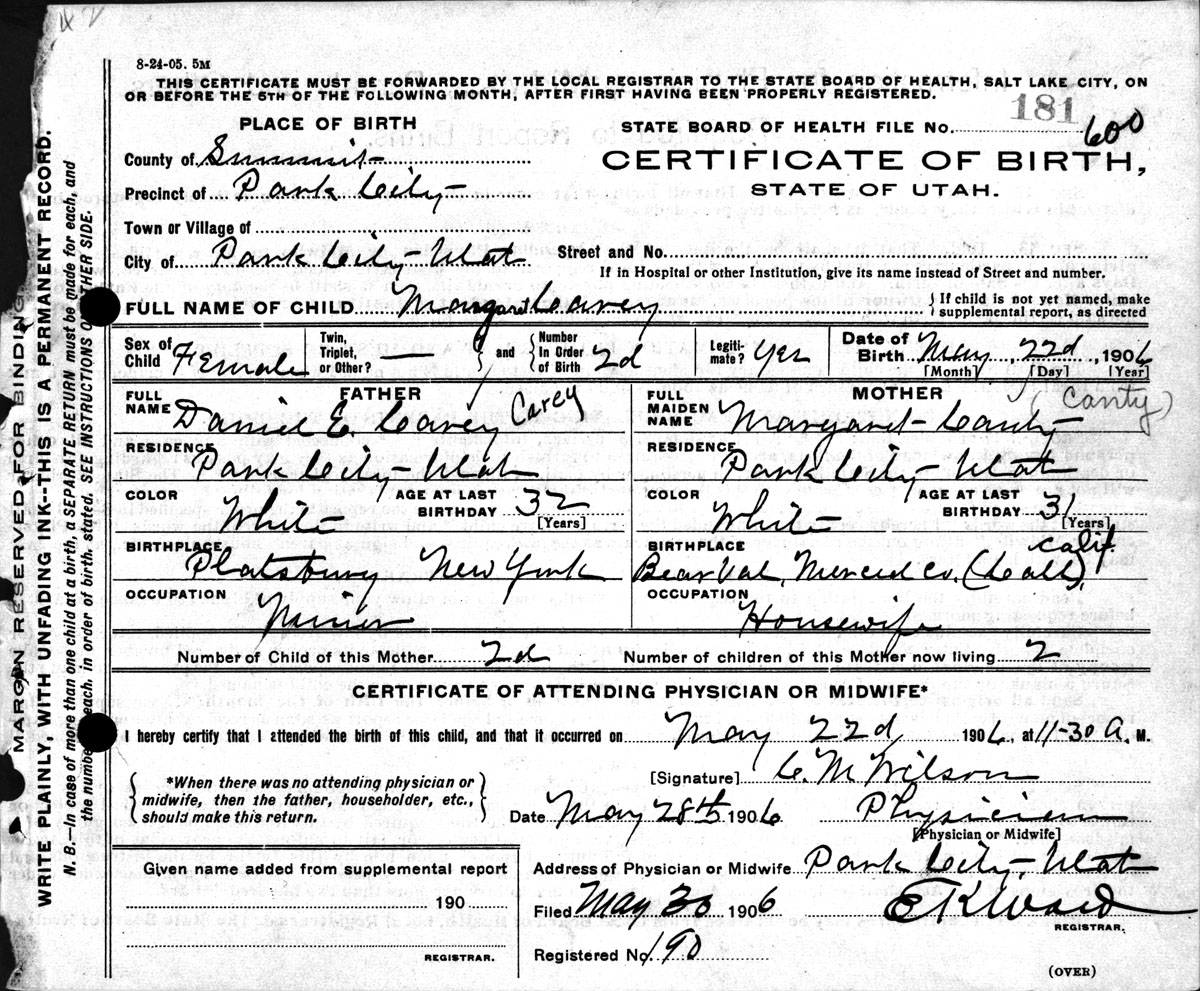 42
8-24-05. 5M
THIS CERTIFICATE MUST BE FORWARDED BY THE LOCAL REGISTRAR TO THE STATE BOARD OF HEALTH, SALT LAKE CITY, ON
OR BEFORE THE 5TH OF THE FOLLOWING MONTH, AFTER FIRST HAVING BEEN PROPERLY REGISTERED.
181
PLACE OF BIRTH
STATE BOARD OF HEALTH FILE NO. 600
County of Summit
CERTIFICATE OF BIRTH,
Precinct of Park City
STATE OF UTAH.
Town or Village of
City of Park City Utah Street and No.
If in Hospital or other Institution, give its name instead of Street and number.
FULL NAME OF CHILD Margaret Carey { If child is not yet named, make
supplemental report, as directed
Sex of Child Female Twin, Triplet, or Other? — and Number In Order of Birth 2d Legiti-mate? Yes Date of Birth May 22d, 1906
[Month] [Day] [Year]
FATHER
MOTHER
FULL NAME Daniel E. Carey Carey
FULL MAIDEN NAME Margaret Canty (Canty)
RESIDENCE Park City Utah
RESIDENCE Park City Utah
COLOR White AGE AT LAST BIRTHDAY 32 [Years]
COLOR White AGE AT LAST BIRTHDAY 31 [Years]
BIRTHPLACE Platsburg New York
BIRTHPLACE Bear Val, Merced Co. (Call). Calif.
OCCUPATION Miner
OCCUPATION Housewife
Number of Child of this Mother 2d Number of children of this Mother now living 2
CERTIFICATE OF ATTENDING PHYSICIAN OR MIDWIFE*
I hereby certify that I attended the birth of this child, and that it occurred on May 22d, 1906, at 11-30 A. M.
{ *When there was no attending physician or
midwife, then the father, householder, etc.,
should make this return. }
[Signature] C. M. Wilson
Date May 28th 1906 Physician
[Physician or Midwife]
Given name added from supplemental report
190
REGISTRAR.
Address of Physician or Midwife Park City, Utah
Filed May 30 1906 E K Ward
REGISTRAR.
Registered No. 190
(OVER)
MARGIN RESERVED FOR BINDING
WRITE PLAINLY, WITH UNFADING INK--THIS IS A PERMANENT RECORD.
N. B.—In case of more than one child at a birth, a SEPARATE RETURN must be made for each, and
the number each, in order of birth. stated. SEE INSTRUCTIONS OTHER SIDE.